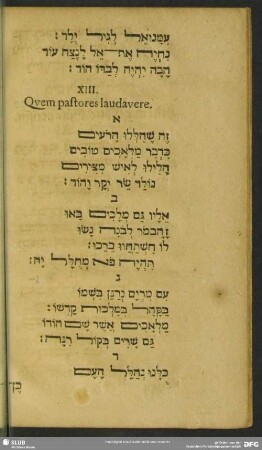 עִמָּנוּאֵל לְגִיל יֻלַּד׃
נְחַיֶּה אֶת־אֵל לָנֶצַח עוֹד
הָבָה יִהְיֶה לְבַדּוֹ הוֹד׃
XIII.
Qvem pastores laudavere.
א
זֶה שֶׁהִלְלוּ הָרֹעִים
כִּדְבַר מַלְאָכִים טוֹבִים
הָלִילוּ לְאִישׁ
נוֹלַד שַׂר יְקָר וָהוֹד׃
ב
אֵלָיו גַּם מְלָכִים בָּאוּ
זָהָב מֹר לְבֹנָה נָשׂוּ
לוֹ הִשְׁתַּחֲווּ בֵּרְכוּ׃
תִּהְיֶה פֹּה מְהֻלָּל יָהּ׃
ג
עִם מִרְיָם נְרַנֵּן בִּשְׁמוֹ
בַּקָּהָל בְּמַלְכוּת קָדְשׁוֹ׃
מַלְאָכִים אֲשֶׁר שָׁם הוֹדוֹ
גַּם שָׁרִים בְּקוֹל רִנָּה׃
ד
כֻּלָּנוּ נְהַלֵּל הָעָם
SLUB